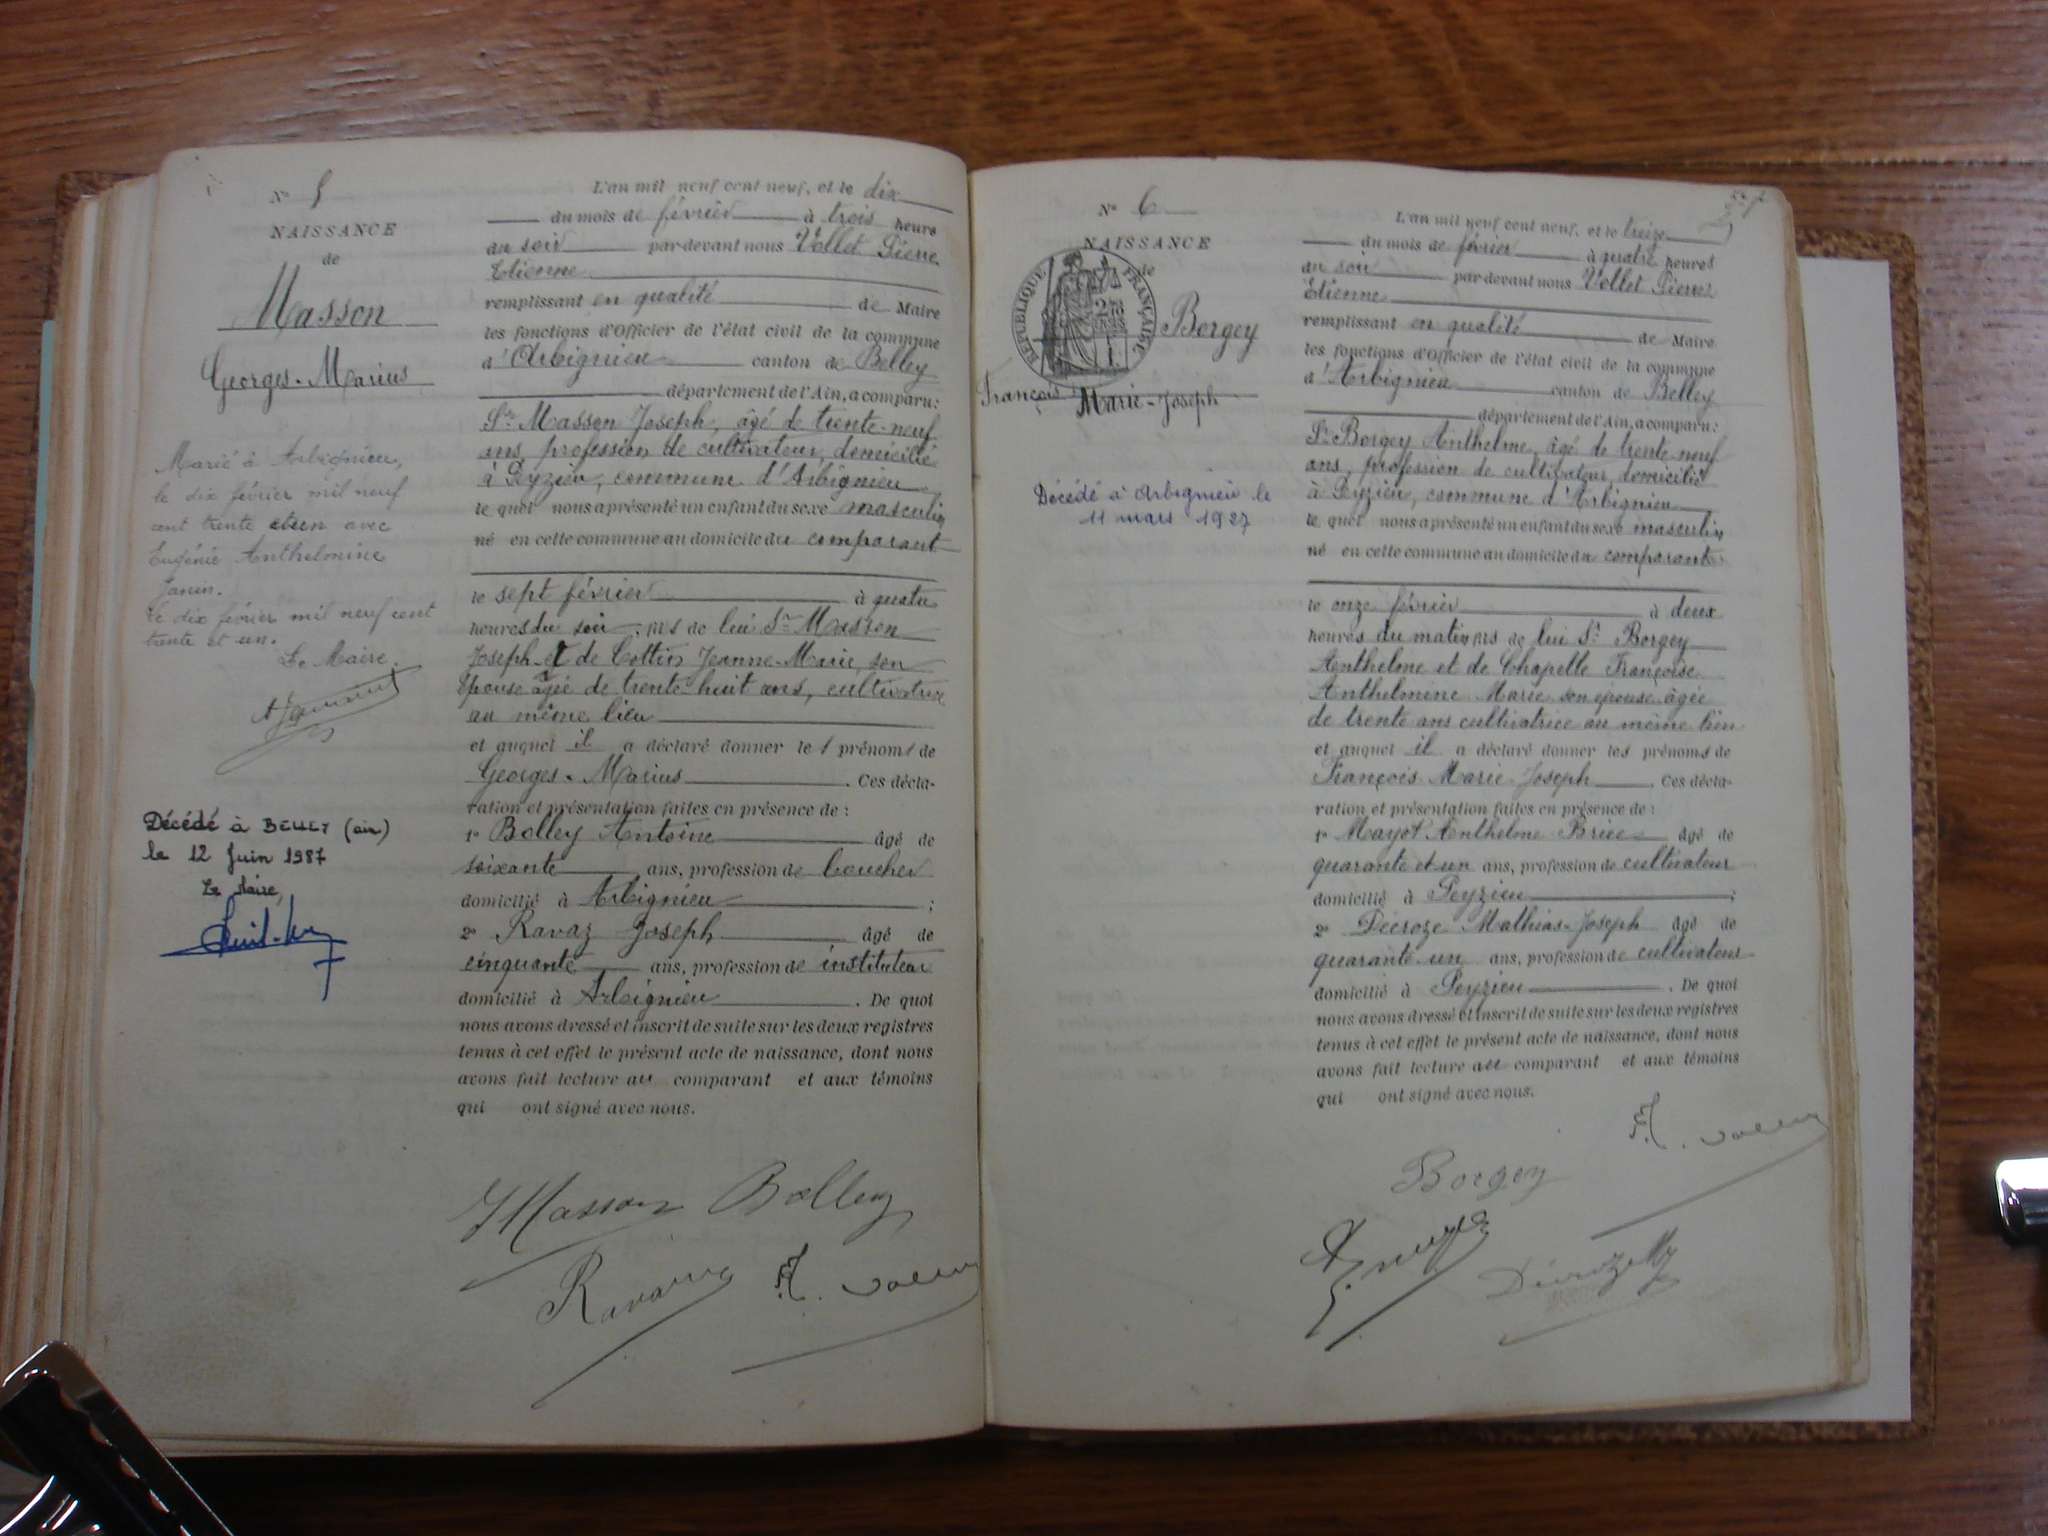 N° 5
NAISSANCE
de
Masson
Georges-Marius
Marié à Arbignieu,
le dix février mil neuf
cent trente et un avec
Eugénie Anthelmine
Janin.
Le dix février mil neuf cent
trente et un.
Le Maire.
Décédé à BELLEY (ain)
le 12 Juin 1987
Le Maire,
L'an mil neuf cent neuf, et le dix
du mois de février à trois heures
du soir par-devant nous Vollet Pierre
Etienne
remplissant en qualité de Maire
les fonctions d'Officier de l'état civil de la commune
d'Arbignieu canton de Belley
département de l'Ain, a comparu:
Sr Masson Joseph, âgé de trente-neuf
ans, profession de cultivateur, domicilié
à Peyzieu, commune d'Arbignieu
lequel nous a présenté un enfant du sexe masculin
né en cette commune au domicile du comparant
le sept février à quatre
heures du soir, fils de lui Sr Masson
Joseph et de Cottin Jeanne-Marie, son
épouse âgée de trente-huit ans, cultivatrice
au même lieu
et auquel il a déclaré donner les prénoms de
Georges-Marius. Ces décla-
ration et présentation faites en présence de:
1° Bolley Antoine âgé de
soixante ans, profession de boucher
domicilié à Arbignieu;
2° Ravaz Joseph âgé de
cinquante ans, profession de instituteur
domicilié à Arbignieu. De quoi
nous avons dressé et inscrit de suite sur les deux registres
tenus à cet effet le présent acte de naissance, dont nous
avons fait lecture au comparant et aux témoins
qui ont signé avec nous.
J Masson Bolley
Ravaz
N° 6
NAISSANCE
de
RÉPUBLIQUE FRANÇAISE
Borgey
François Marie-Joseph
Décédé à Arbignieu le
11 mars 1987
L'an mil neuf cent neuf, et le treize
du mois de février à quatre heures
du soir par-devant nous Vollet Pierre
Etienne
remplissant en qualité de Maire
les fonctions d'Officier de l'état civil de la commune
d'Arbignieu canton de Belley
département de l'Ain, a comparu:
Sr Borgey Anthelme, âgé de trente-neuf
ans, profession de cultivateur, domicilié
à Peyzieu, commune d'Arbignieu
lequel nous a présenté un enfant du sexe masculin
né en cette commune au domicile du comparant
le onze février à deux
heures du matin fils de lui Sr Borgey
Anthelme et de Chapelle Françoise
Anthelmine Marie son épouse âgée
de trente ans cultivatrice au même lieu
et auquel il a déclaré donner les prénoms de
François-Marie-Joseph. Ces décla-
ration et présentation faites en présence de:
1° Mayot Anthelme-Brice âgé de
quarante et un ans, profession de cultivateur
domicilié à Peyzieu;
2° Décroze Mathias-Joseph âgé de
quarante-un ans, profession de cultivateur
domicilié à Peyzieu. De quoi
nous avons dressé et inscrit de suite sur les deux registres
tenus à cet effet le présent acte de naissance, dont nous
avons fait lecture au comparant et aux témoins
qui ont signé avec nous.
Borgey